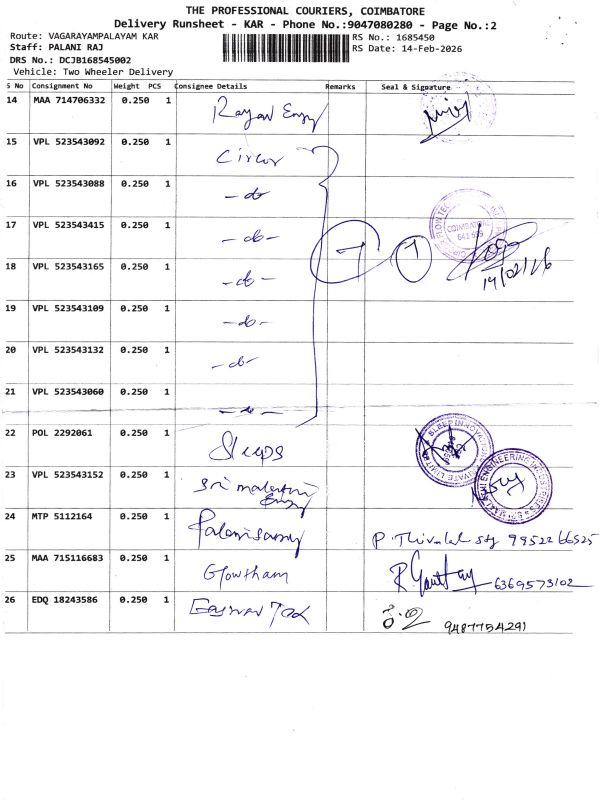 THE PROFESSIONAL COURIERS, COIMBATORE
Delivery Runsheet - KAR - Phone No.:9047080280 - Page No.:2
Route: VAGARAYAMPALAYAM KAR
RS No.: 1685450
Staff: PALANI RAJ
RS Date: 14-Feb-2026
DRS No.: DCJB168545002
Vehicle: Two Wheeler Delivery
S No Consignment No Weight PCS Consignee Details Remarks Seal & Signature
14 MAA 714706332 0.250 1
15 VPL 523543092 0.250 1
16 VPL 523543088 0.250 1 -do-
17 VPL 523543415 0.250 1 -do-
COIMBATORE
18 VPL 523543165 0.250 1 -do-
14/02/26
19 VPL 523543109 0.250 1 -do-
20 VPL 523543132 0.250 1 -do-
21 VPL 523543060 0.250 1 -do-
22 POL 2292061 0.250 1
23 VPL 523543152 0.250 1
24 MTP 5112164 0.250 1 Palanisamy
25 MAA 715116683 0.250 1 Gowtham 6369573102
26 EDQ 18243586 0.250 1
9487754291